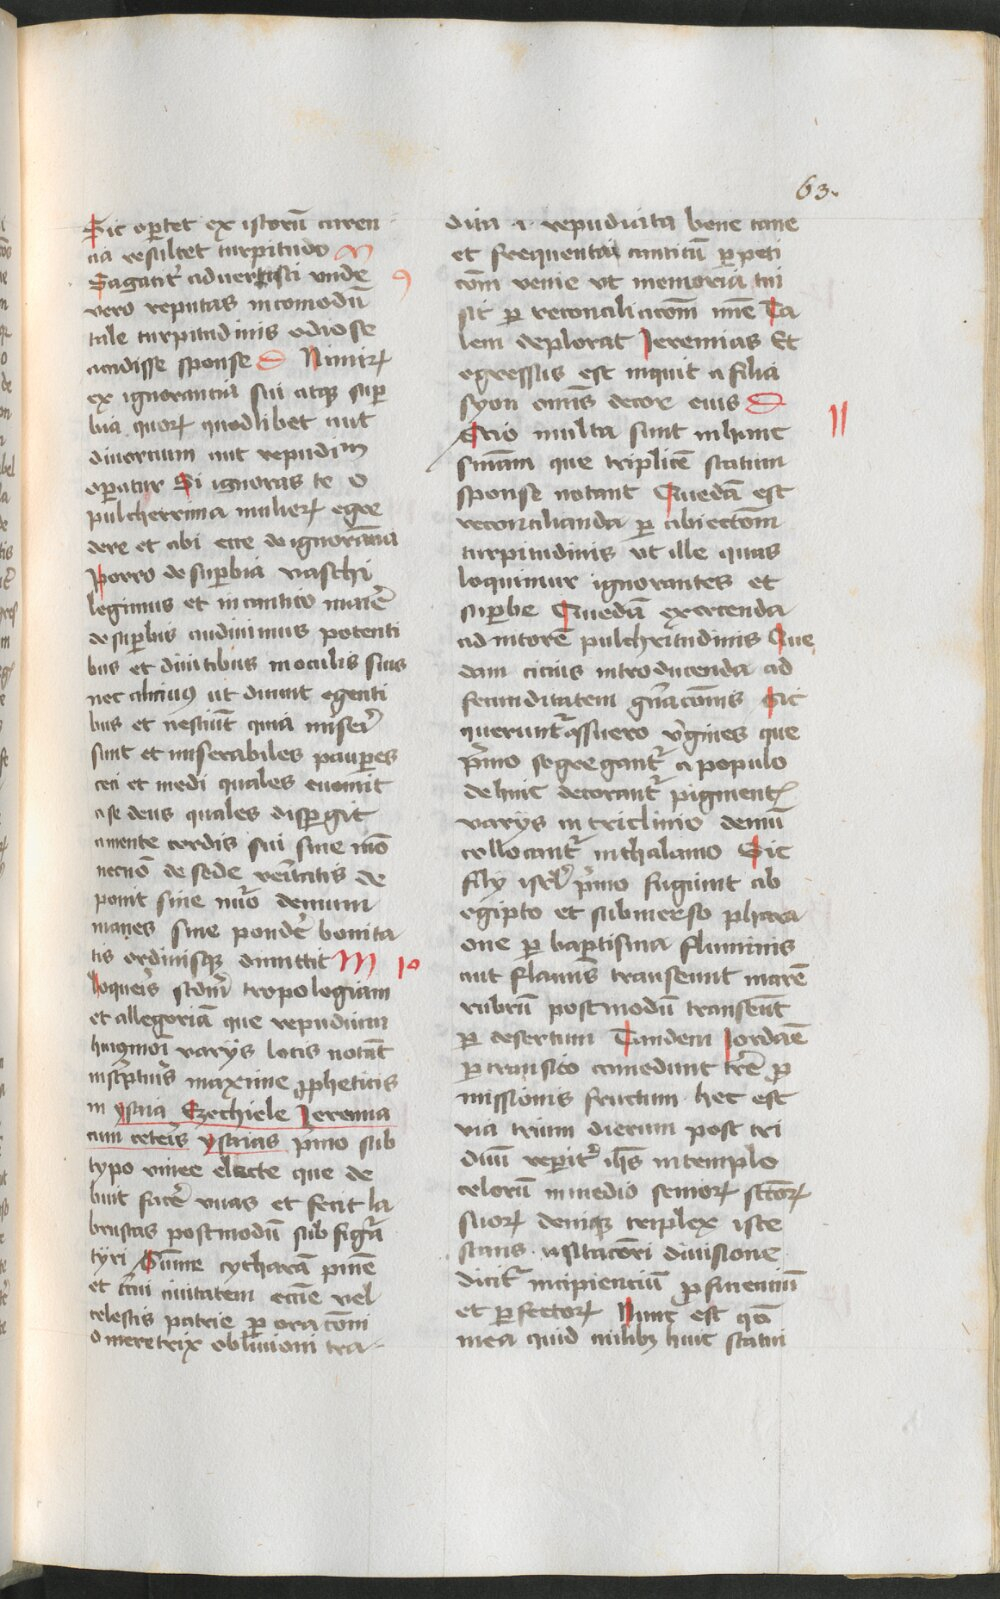 63.
Sic oꝑtet ex istoꝝ caren
cia resultet turpitudo M
Sagacit̉ aduertisti vnde 9
vero reputas incomodū
tale turpitudinis odiose
accidisse sponse D Nimiꝝ
ex ignorancia sui atqꝫ suꝑ
bia quoꝝ quodlibet aut
diuorcium aut repudiᵐ
oꝑatur Si ignoras te o
pulcherrima mulieꝝ egre
dere et abi ecce de ignorācia
Porro de suꝑbia vaschi
legimus et in cantico mat̄e
de suꝑbis audiuimus potenti
bus et diuitibus in oculis suis
nec alicuiꝰ ut dicunt egenti
bus et nesciūt quia miser̉
sunt et miserabiles pauꝑes
ceci et nudi quales euomit
a se deus quales disꝑgit
a mente cordis sui sine mō
necnō de sede v̉itatis de
ponit sine nūo demum
manes sine pondē bonita
tis ordinisqꝫ dimittit M 10
loqueris scdm̄ tropologiam
et allegoriā que repudium
huiꝰmōi varijs locis notāt
in scⁱptur̉ maxime ꝓpheticis
in ysaia Ezechiele Jeremia
cum ceter̉ ysaias p̉mo sub
typo vinee electe que de
buit facē vuas et fecit la
bruscas postmodū sub figᵃ
tyri Sume cytharā
et circui ciuitatem eccīe vel
celestis patrie ꝑ oracōm
o meretrix obliuioni tra-
dita .i. repudiata bene cane
et frequenta canticū ꝑ peti
cōm venie vt memoria tui
sit ꝑ reconciliacōm Ta
lem deplorat Jeremias Et
egressus est inquit a filia
syon omīs decor eius D
Scio multa sunt in hanc 11
sn̄iam que triplicē statum
sponse notant Quedā est
reconcilianda ꝑ abiectōm
turpitudinis vt ille quas
loquimur ignorantes et
suꝑbe Quedā exercenda
ad nitorē pulchritudinis Que
dam cicius introducenda ad
fecunditatem gn̄acōnis Sic
querunt̉ assuero v̉gines que
p̉mo segregant̉ a populo
dehinc decorant̉ pigment̉
varijs in triclinio demū
collocant̉ in thalamo Sic
filij isrl̉ p̉mo fugiunt ab
egipto et submerso phara
one ꝑ baptisma fluminis
aut flam̄is transeunt marē
rubrū postmodū transeūt
ꝑ desertum Tandem Jordāe
ꝑtransito comedunt t̄re ꝓ
missionis fructum hec est
via trium dierum post tri
duū reꝑit̉ ihūs in templo
celorū in medio senioꝝ sctōꝝ
suoꝝ deniqꝫ triplex iste
status vsitaciori diuisione
dicit̉ incipienciū ꝓficienciū
et ꝑfectoꝝ Nunc est qōo
mea quid nilibꝫ huic statui